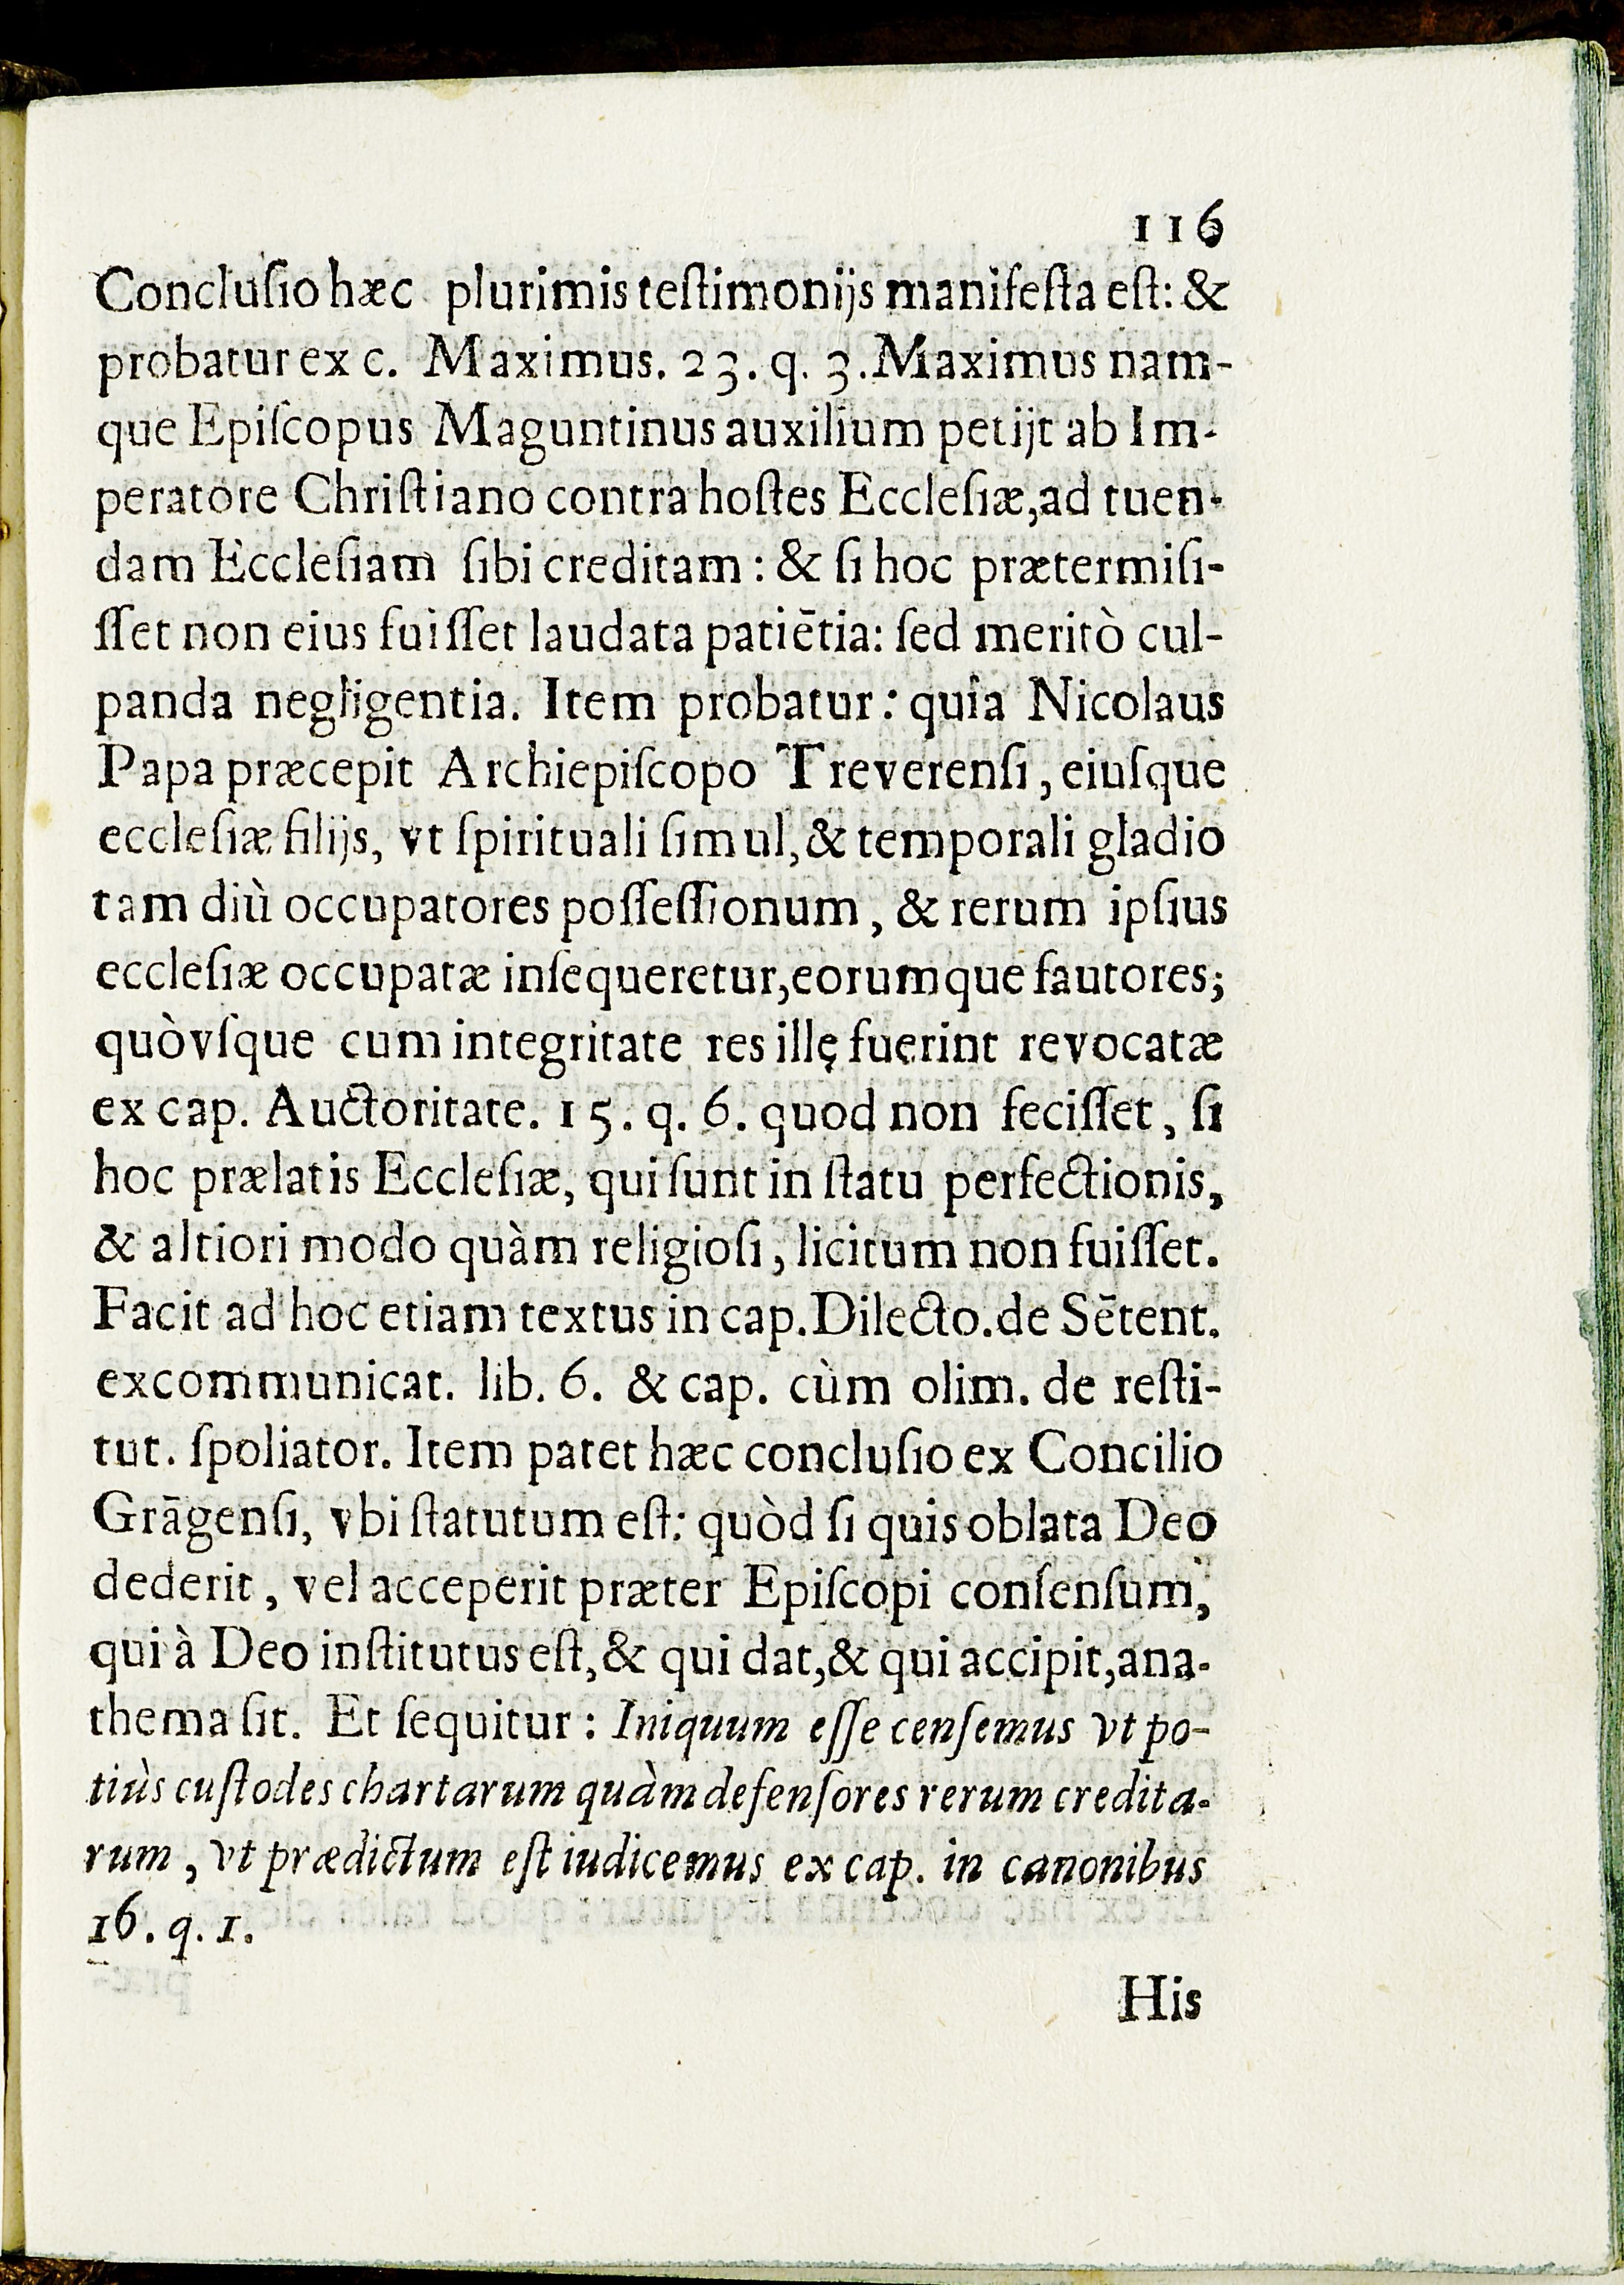 116
Concluſio hæc plurimis teſtimonijs manifeſta eſt: &
probatur ex c. Maximus. 23. q. 3. Maximus nam-
que Epiſcopus Maguntinus auxilium petijt ab Im-
peratore Chriſtiano contra hoſtes Eccleſiæ, ad tuen-
dam Eccleſiam ſibi creditam: & ſi hoc prætermiſi-
ſſet non eius fuiſſet laudata patiētia: ſed meritò cul-
panda negligentia. Item probatur: quia Nicolaus
Papa præcepit Archiepiſcopo Treverenſi, eiuſque
eccleſiæ filijs, vt ſpirituali ſimul, & temporali gladio
tam diù occupatores poſſeſſionum, & rerum ipſius
eccleſiæ occupatæ inſequeretur, eorumque fautores;
quòvſque cum integritate res illę fuerint revocatæ
ex cap. Auctoritate. 15. q. 6. quod non feciſſet, ſi
hoc prælatis Eccleſiæ, qui ſunt in ſtatu perfectionis,
& altiori modo quàm religioſi, licitum non fuiſſet.
Facit ad hoc etiam textus in cap. Dilecto. de Sētent.
excommunicat. lib. 6. & cap. cùm olim. de reſti-
tut. ſpoliator. Item patet hæc concluſio ex Concilio
Grāgenſi, vbi ſtatutum eſt: quòd ſi quis oblata Deo
dederit, vel acceperit præter Epiſcopi conſenſum,
qui à Deo inſtitutus eſt, & qui dat, & qui accipit, ana-
thema ſit. Et ſequitur: Iniquum eſſe cenſemus vt po-
tiùs cuſtodes chartarum quàm defenſores rerum credita-
rum, vt prædictum eſt iudicemus ex cap. in canonibus
16. q. 1.
His